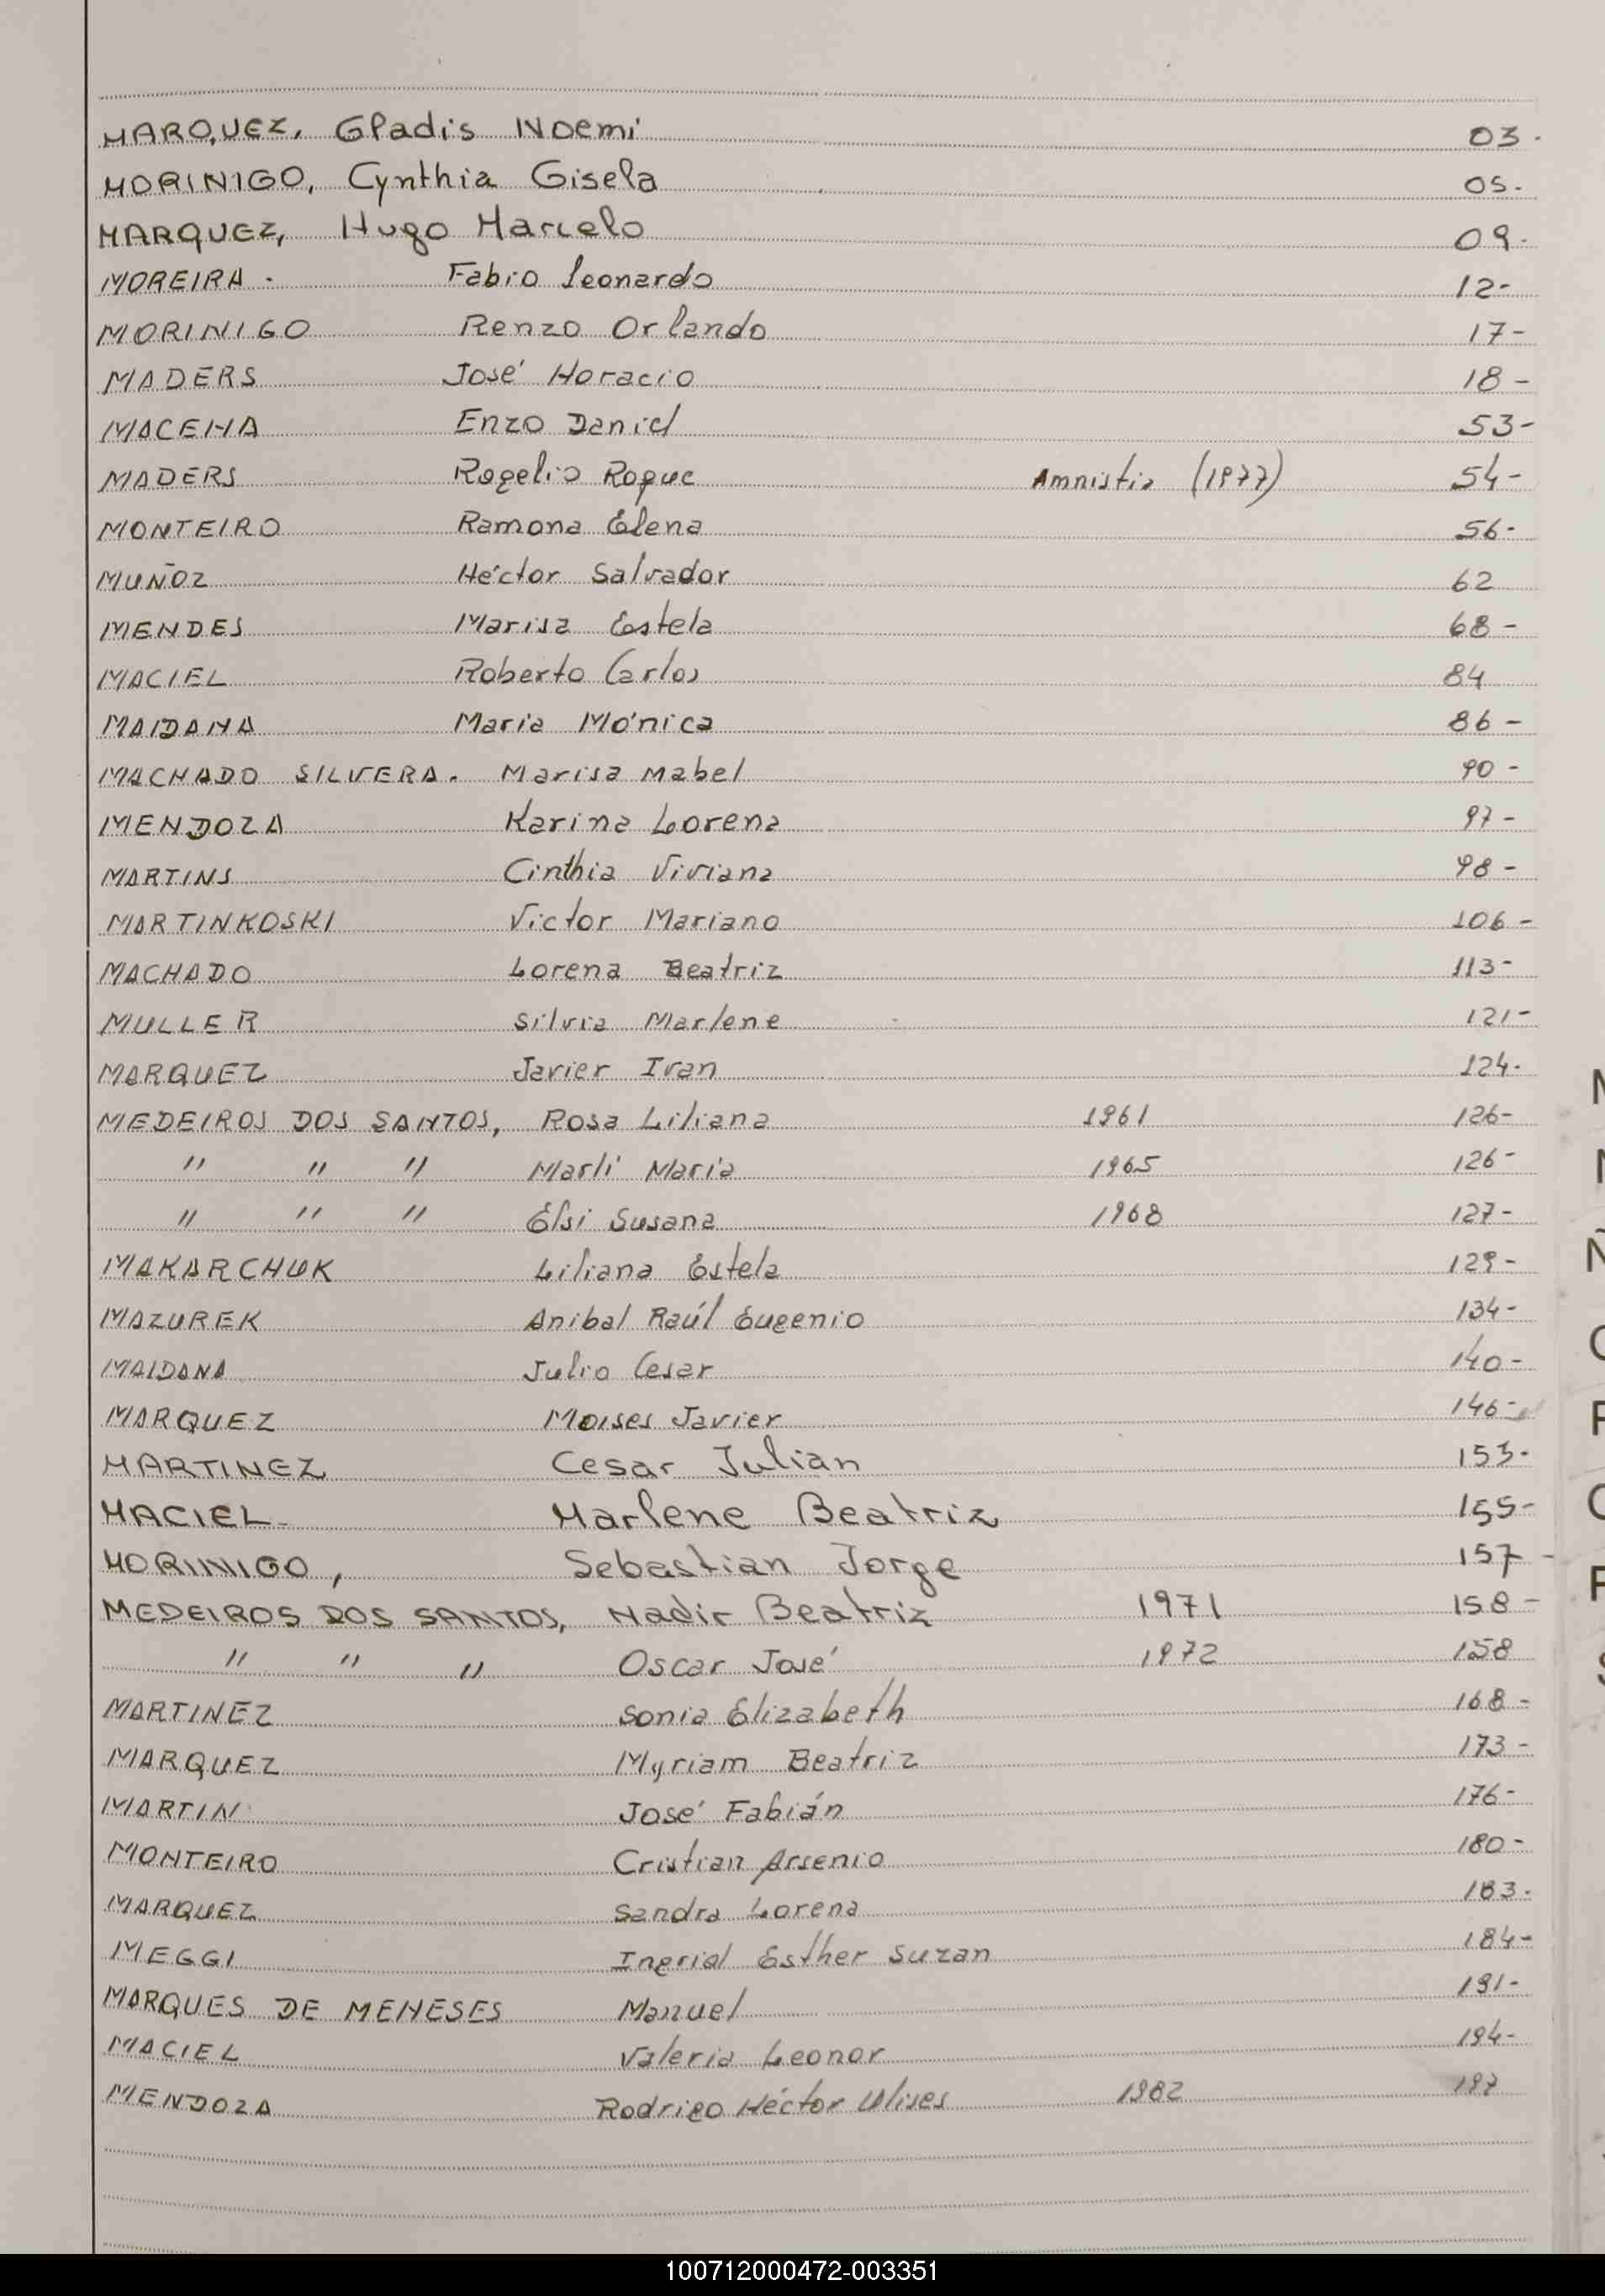 MARQUEZ, Gladis Noemi 03.
MORINIGO, Cynthia Gisela 05.
MARQUEZ, Hugo Marcelo 09.
MOREIRA. Fabio Leonardo 12-
MORINIGO Renzo Orlando 17-
MADERS José Horacio 18-
MACENA Enzo Daniel 53-
MADERS Rogelio Roque Amnistia (1977) 54-
MONTEIRO Ramona Elena 56-
MUÑOZ Héctor Salvador 62
MENDES Marisa Estela 68-
MACIEL Roberto Carlos 84
MAIDANA Maria Mónica 86-
MACHADO SILVERA. Marisa Mabel 90-
MENDOZA Karina Lorena 97-
MARTINS Cinthia Viviana 98-
MARTINKOSKI Victor Mariano 106-
MACHADO Lorena Beatriz 113-
MULLER Silvia Marlene 121-
MARQUEZ Javier Ivan 124.
MEDEIROS DOS SANTOS, Rosa Liliana 1961 126-
" " " Marli Maria 1965 126-
" " " Elsi Susana 1968 127-
MAKARCHUK Liliana Estela 129-
MAZUREK Anibal Raúl Eugenio 134-
MAIDANA Julio Cesar 140-
MARQUEZ Moises Javier 146-
MARTINEZ Cesar Julian 153.
MACIEL Marlene Beatriz 155-
MORINIGO, Sebastian Jorge 157-
MEDEIROS DOS SANTOS, Nadir Beatriz 1971 158-
" " " Oscar José 1972 158
MARTINEZ Sonia Elizabeth 168-
MARQUEZ Myriam Beatriz 173-
MARTIN José Fabián 176-
MONTEIRO Cristian Arsenio 180-
MARQUEZ Sandra Lorena 183.
MEGGI Ingrid Esther Suzan 184-
MARQUES DE MENESES Manuel 191-
MACIEL Valeria Leonor 194-
MENDOZA Rodrigo Héctor Ulises 1982 197
100712000472-003351